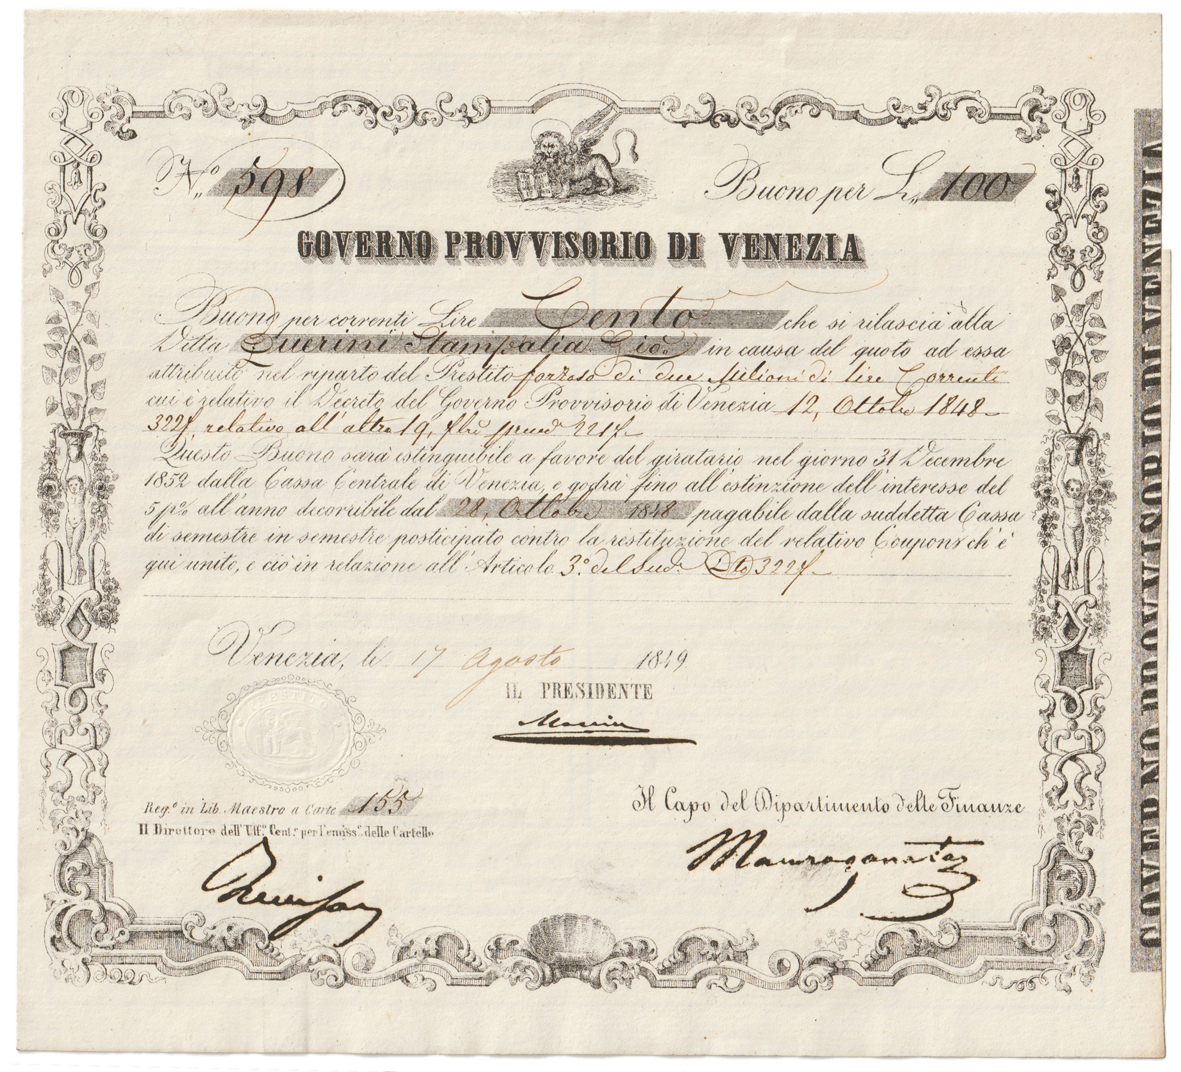 N.º 598
Buono per L. 100
GOVERNO PROVVISORIO DI VENEZIA
Buono per correnti Lire Cento che si rilascia alla
Ditta Querini Stampalia Gio. in causa del quoto ad essa
attribuito nel riparto del Prestito forzoso di due Milioni di lire Correnti
cui è relativo il Decreto del Governo Provvisorio di Venezia 12, Ottobre 1848
322f relativo all'altro 19,
Questo Buono sarà estinguibile a favore del giratario nel giorno 31 Decembre
1852 dalla Cassa Centrale di Venezia, e godrà fino all'estinzione dell'interesse del
5 p% all'anno decorribile dal 28, Ottobre 1848 pagabile dalla suddetta Cassa
di semestre in semestre posticipato contro la restituzione del relativo Coupons ch'è
qui unito, e ciò in relazione all'Articolo 3.º del sud.º Dto 322f
Venezia, li 17 Agosto 1849
IL PRESIDENTE
Manin
Reg.º in Lib. Maestro a Carte 155
Il Capo del Dipartimento delle Finanze
Il Direttore dell'Uff.º Cent.e per l'emiss.e delle Cartelle
Maurogonato
GOVERNO PROVVISORIO DI VENEZIA